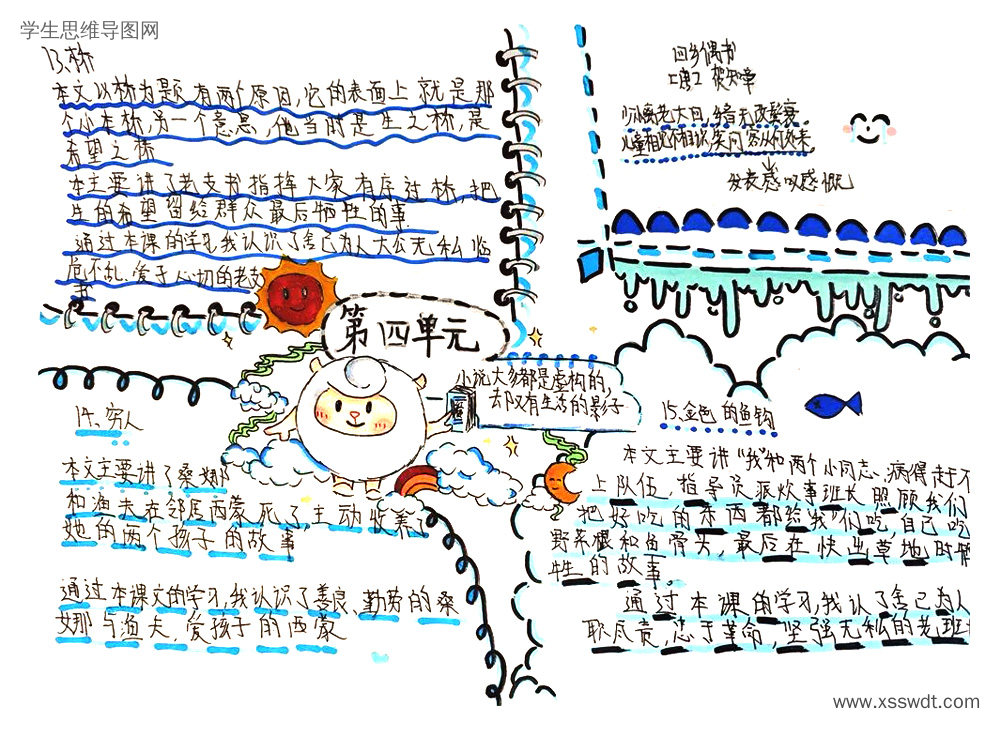 学生思维导图网
13、桥
本文以桥为题有两个原因,它的表面上就是那
个小木桥,另一个意思,他当时是生之桥,是
希望之桥
本主要讲了老支书指挥大家有序过桥,把
生的希望留给群众最后牺牲的事
通过本课的学习,我认识了舍己为人大公无私临
危不乱,爱子心切的老支
书
回乡偶书
贺知章
少小离老大回,乡音无改鬓衰
儿童相见不相识,笑问客从何处来
发表感叹感慨
第四单元
小说大多都是虚构的,
却又有生活的影子
14、穷人
本文主要讲了桑娜
和渔夫在邻居西蒙死了,主动收养了
她的两个孩子的故事
通过本课文的学习,我认识了善良、勤劳的桑
娜与渔夫,爱孩子的西蒙
15、金色的鱼钩
本文主要讲“我”和两个小同志,病得赶不
上队伍,指导员派炊事班长照顾我们
把好吃的东西都给“我”们吃,自己吃
野菜根和鱼骨头,最后在快出草地时牺
牲的故事。
通过本课的学习,我认了舍己为人
职尽责,忠于革命,坚强无私的老班
www.xsswdt.com